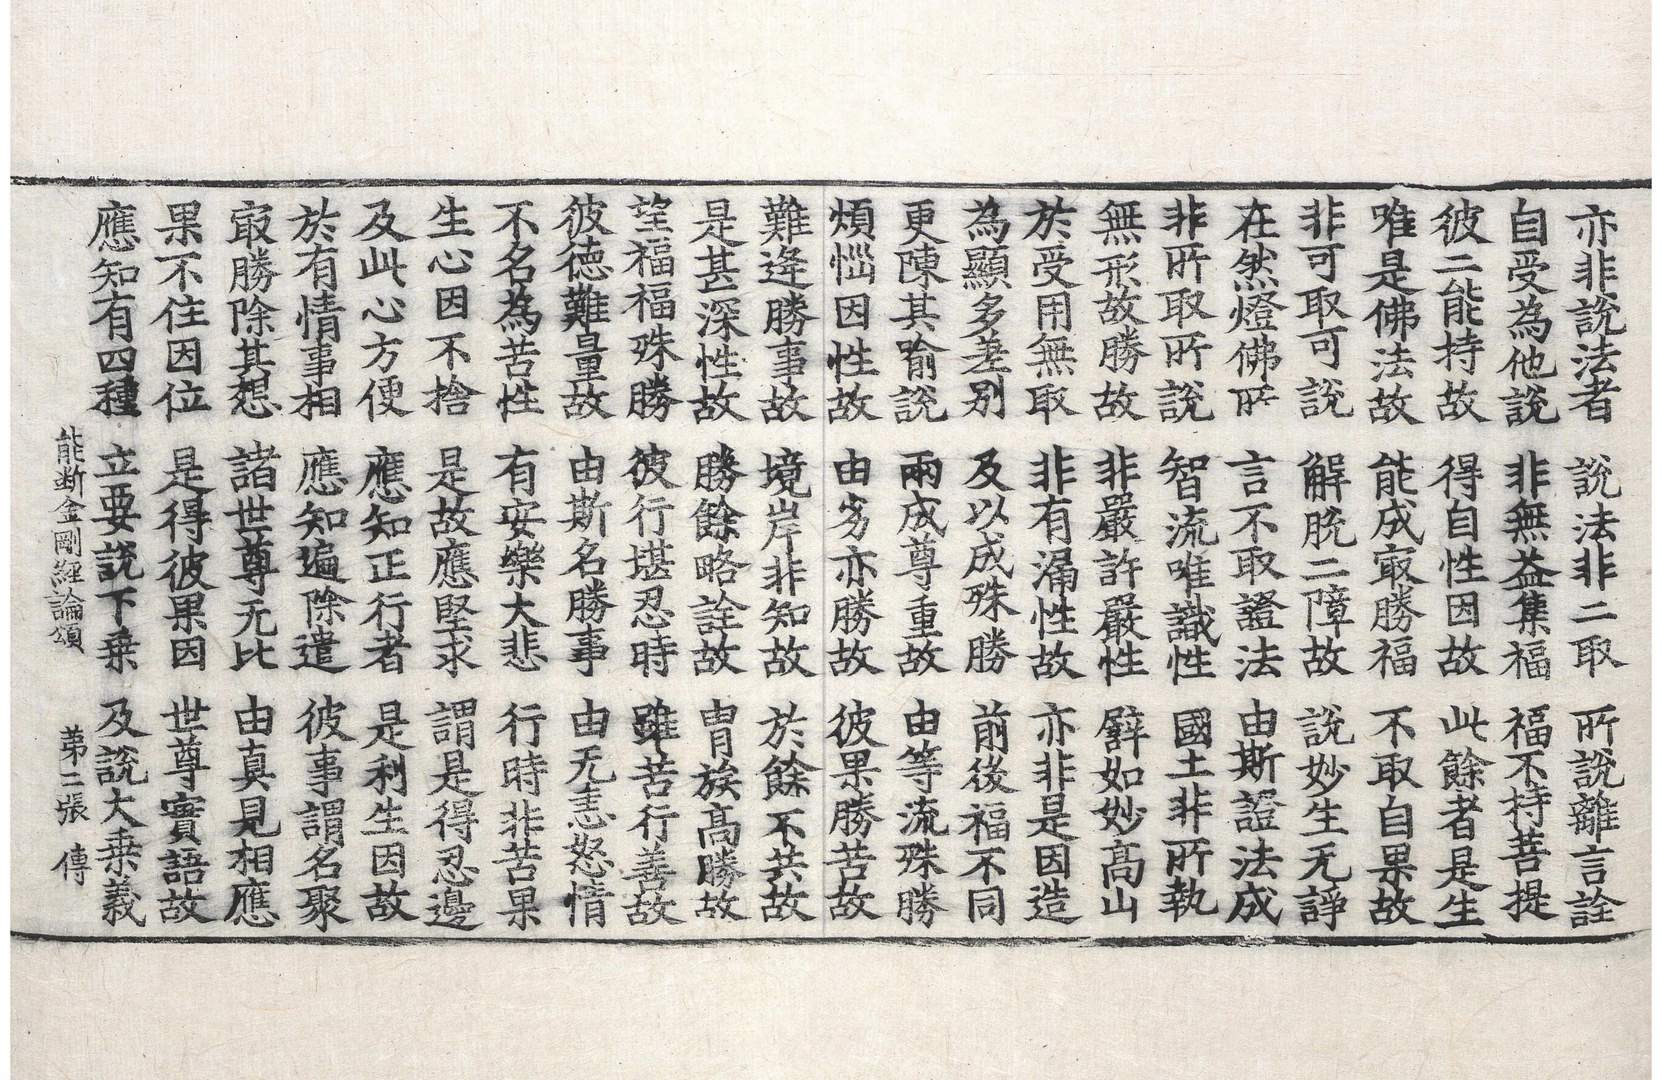 亦非說法者 說法非二取 所說離言詮
自受為他說 非無益集福 福不持菩提
彼二能持故 得自性因故 此餘者是生
唯是佛法故 能成㝡勝福 不取自果故
非可取可說 解脫二障故 說妙生无諍
在然燈佛所 言不取證法 由斯證法成
非所取所說 智流唯識性 國土非所執
無形故勝故 非嚴許嚴性 譬如妙高山
於受用無取 非有漏性故 亦非是因造
為顯多差別 及以成殊勝 前後福不同
更陳其喻說 兩成尊重故 由等流殊勝
煩惱因性故 由劣亦勝故 彼果勝苦故
難逢勝事故 境岸非知故 於餘不共故
是甚深性故 勝餘略詮故 胄族高勝故
望福福殊勝 彼行堪忍時 雖苦行善故
彼德難量故 由斯名勝事 由无恚怒情
不名為苦性 有安樂大悲 行時非苦果
生心因不捨 是故應堅求 謂是得忍邊
及此心方便 應知正行者 是利生因故
於有情事相 應知遍除遣 彼事謂名聚
㝡勝除其想 諸世尊无此 由真見相應
果不住因位 是得彼果因 世尊實語故
應知有四種 立要說下乗 及說大乗義
能断金剛經論頌 苐二張 傳